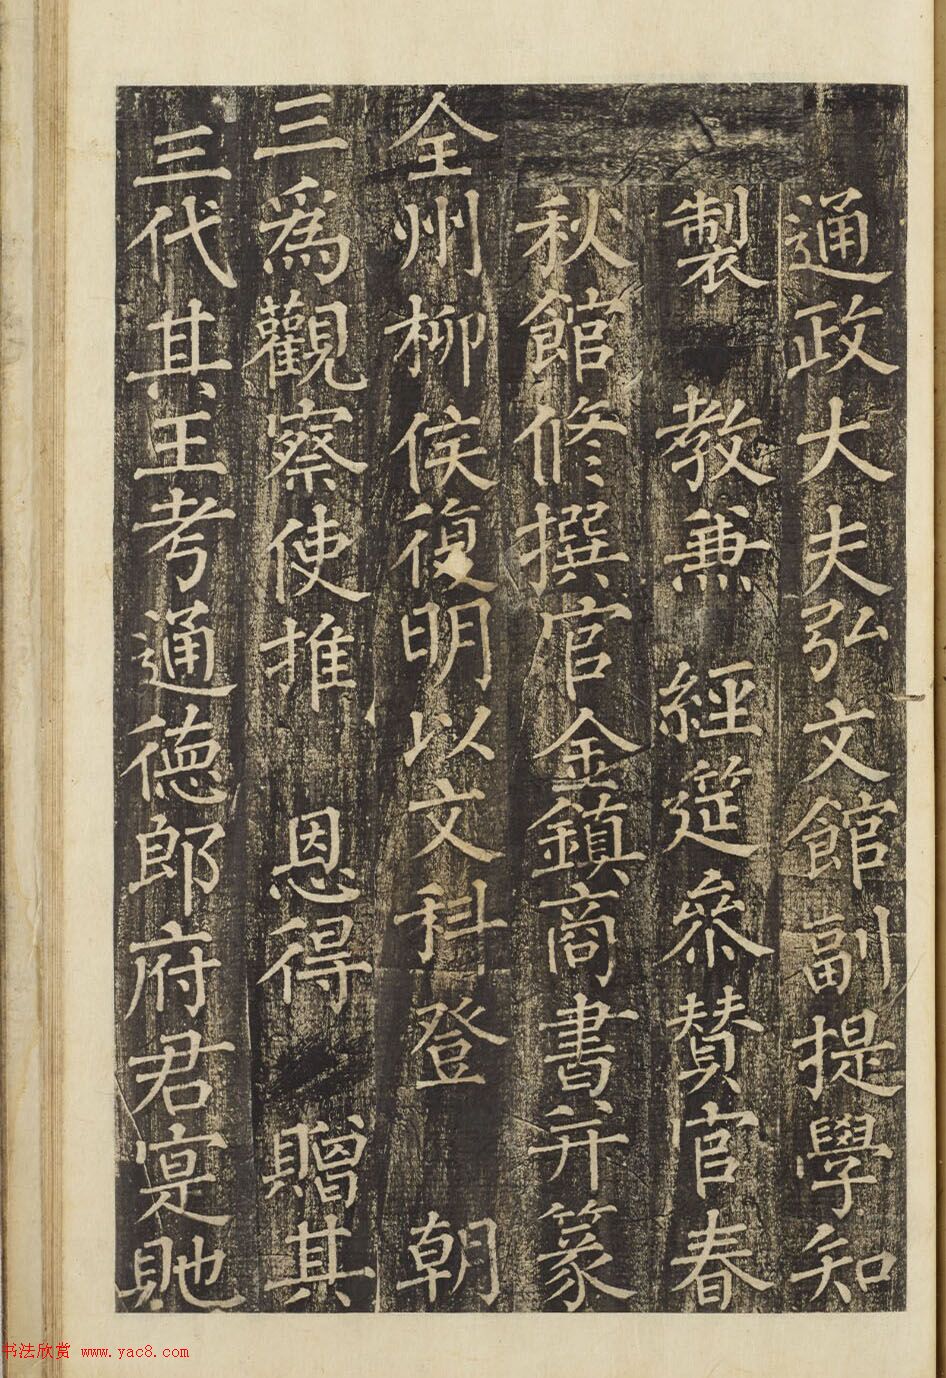 通政大夫弘文館副提學知
製 教兼 經筵參贊官春
秋館修撰官金鎮商書并篆
全州柳侯復明以文科登 朝
三爲觀察使推 恩得 贈其
三代其王考通德郎府君寔貤
书法欣赏 www.yac8.com